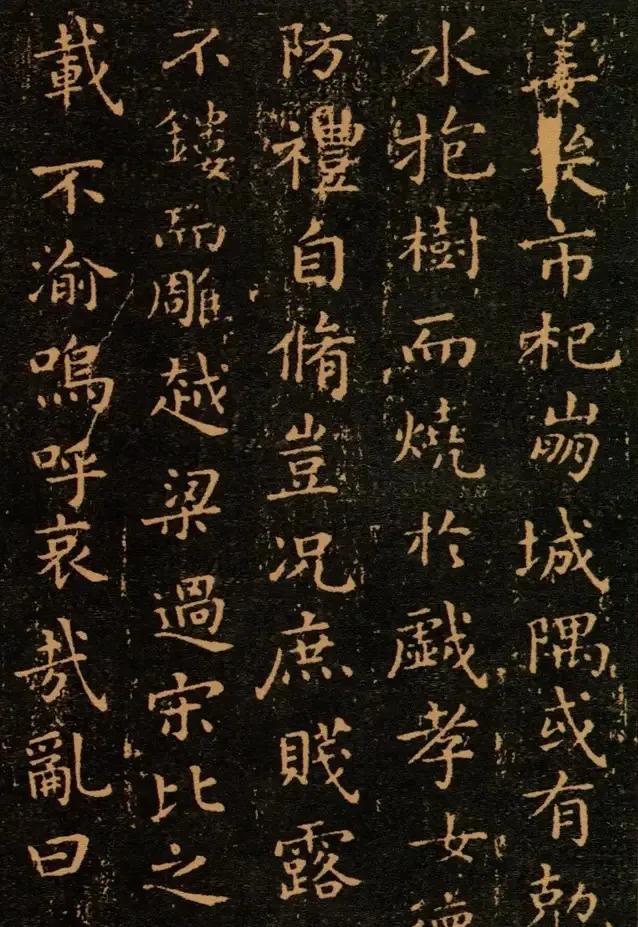 姜市杞崩城隅或有
水抱樹而燒於戱孝女
防禮自脩豈况庶賤露
不鏤而雕越梁過宋比之
載不渝嗚呼哀哉亂曰